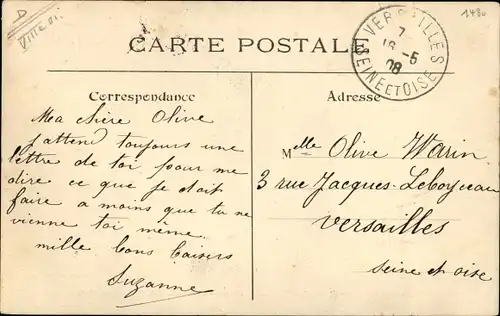 D
1480
CARTE POSTALE
VERSAILLES
7
16 -5
08
SEINE ET OISE
Correspondance
Ma chère Olive
j'attend toujours une
lettre de toi pour me
dire ce que je doit
faire a moins que tu ne
vienne toi même.
mille bons baisers
Suzanne
Adresse
Melle Olive Warin
3 rue Jacques-Leboyceau
Versailles
Seine et oise